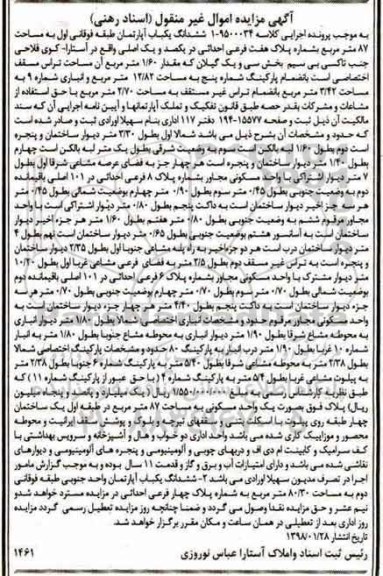 آگهی مزایده اموال غیر منقول (اسناد رهنی)
به موجب پرونده اجرایی کلاسه ۱۰۹۵۰۰۰۳۴ ششدانگ یکباب آپارتمان طبقه فوقانی اول به مساحت
۸۷ متر مربع بشماره پلاک هفت فرعی احداثی در یکصد و یک اصلی واقع در آستارا- کوی فلاحی
جنب تاکسی بی سیم بخش سی و یک گیلان که مقدار ۱/۶۰ متر مربع آن مساحت تراس مسقف
اختصاصی است بانضمام پارکینگ شماره پنج به مساحت ۱۲/۸۲ متر مربع و انباری شماره ۹ به
مساحت ۳/۴۲ متر مربع بانضمام تراس غیر مسقف به مساحت ۲/۷۰ متر مربع با حق استفاده از
مشاعات و مشترکات بقدر حصه طبق قانون تفکیک و تملک آپارتمانها و آیین نامه اجرایی آن که سند
مالکیت آن ذیل ثبت و صفحه ۱۵۵۷۷-۱۹۴ دفتر ۱۱۷ اداری بنام سهیلا اورادی ثبت و صادر شده است
که حدود و مشخصات آن بشرح ذیل می باشد شمالا اول بطول ۳/۳۰ متر دیوار ساختمان و پنجره
است دوم بطول ۱/۶۰ لبه بالکن است سوم به وضعیت شرقی بطول یک متر لبه بالکن است چهارم
بطول ۱/۴۰ متر دیوار ساختمان و پنجره است هر چهار جز به فضای عرصه مشاعی شرقا اول بطول
۷ متر دیوار اشتراکی با واحد مسکونی مجاور بشماره پلاک ۸ فرعی احداثی در ۱۰۱ اصلی باقیمانده
دوم به وضعیت جنوبی بطول ۰/۴۵ متر سوم بطول ۰/۹۰ متر چهارم به وضعیت شمالی بطول ۰/۴۵ متر
هر سه جزء اخیر دیوار ساختمان است به داکت پنجم بطول ۰/۸۰ متر دیوار اشتراکی است با واحد
مجاور مرقوم ششم به وضعیت جنوبی بطول ۰/۸۰ متر هفتم بطول ۱/۶۰ متر هر جزء اخیر دیوار
ساختمان است به آسانسور هشتم بوضعیت جنوبی بطول ۰/۶۵ متر دیوار ساختمان است نهم بطول ۴
متر دیوار ساختمان درب است هر دو جزء اخیر به راه پله مشاعی جنوبا اول بطول ۲/۳۵ دیوار ساختمان
و پنجره است به تراس غیر مسقف دوم بطول ۳/۵ متر به فضای فرعی مشاعی غربا اول بطول ۱۰/۲۰
متر دیوار مشترک با واحد مسکونی مجاور بشماره پلاک ۶ فرعی احداثی در ۱۰۱ اصلی باقیمانده دوم
بوضعیت شمالی بطول ۰/۷۰ متر سوم بطول ۰/۷۰ متر چهارم بوضعیت جنوبی بطول ۰/۷۰ متر هر سه
جزء دیوار ساختمان است به داکت پنجم بطول ۴/۴۰ متر هر چهار جزء دیوار ساختمان است به
واحد مسکونی مجاور مرقوم حدود و مشخصات انباری اختصاصی شمالا بطول ۱/۸۰ متر دیوار انباری
به محوطه مشاع شرقا بطول ۱/۹۰ متر دیوار انباری به محوطه مشاع جنوبا بطول ۱/۸۰ متر به انبار
شماره ۱۰ غربا بطول ۱/۹۰ متر درب انبار به پارکینگ ۸۰ حدود و مشخصات پارکینگ اختصاصی شمالا
بطول ۲/۳۸ متر به محوطه مشاعی شرقا بطول ۵/۴۰ متر به پارکینگ شماره ۶ جنوبا بطول ۲/۳۸ متر
به پیلوت مشاعی غربا بطول ۵/۴ متر به پارکینگ شماره ۴ (با حق عبور از پارکینگ شماره ۱۱) که
طبق نظریه کارشناس رسمی به مبلغ ۱/۵۵۰/۰۰۰/۰۰۰ ریال ( یک میلیارد و پانصد و پنجاه میلیون
ریال) پلاک فوق بصورت یک واحد مسکونی به مساحت ۸۷ متر مربع در طبقه اول یک ساختمان
چهار طبقه روی پیلوت با اسکلت بتنی و سقفهای تیرچه و بلوک و پوشش سقف ایرانیت و محوطه
محصور و موزاییک کاری شده می باشد واحد اداری دو خواب و هال و آشپزخانه و سرویس بهداشتی با
کف سرامیک و کابینت ام دی اف و دربهای چوبی و آلومینیومی و پنجره های آلومینیومی و دیوارهای
نقاشی شده می باشد و دارای امتیازات آب و برق و گاز و قدمت ۱۱ سال بوده و به موجب گزارش مامور
اجرا در تصرف مدیون سهیلا اورادی می باشد ۲- ششدانگ یکباب آپارتمان واحد جنوبی طبقه فوقانی
دوم به مساحت ۸۰/۳۰ متر مربع به شماره پلاک چهار فرعی احداثی در مزایده مسترد خواهد شد و
نیم عشر و حق مزایده نقدا وصول می گردد و ضمنا چنانچه روز مزایده تعطیل رسمی گردد مزایده
روز اداری بعد از تعطیلی در همان ساعت و مکان مقرر برگزار خواهد شد.
تاریخ انتشار ۱۳۹۸/۰۱/۲۸
رئیس ثبت اسناد و املاک آستارا عباس نوروزی ۱۴۶۱